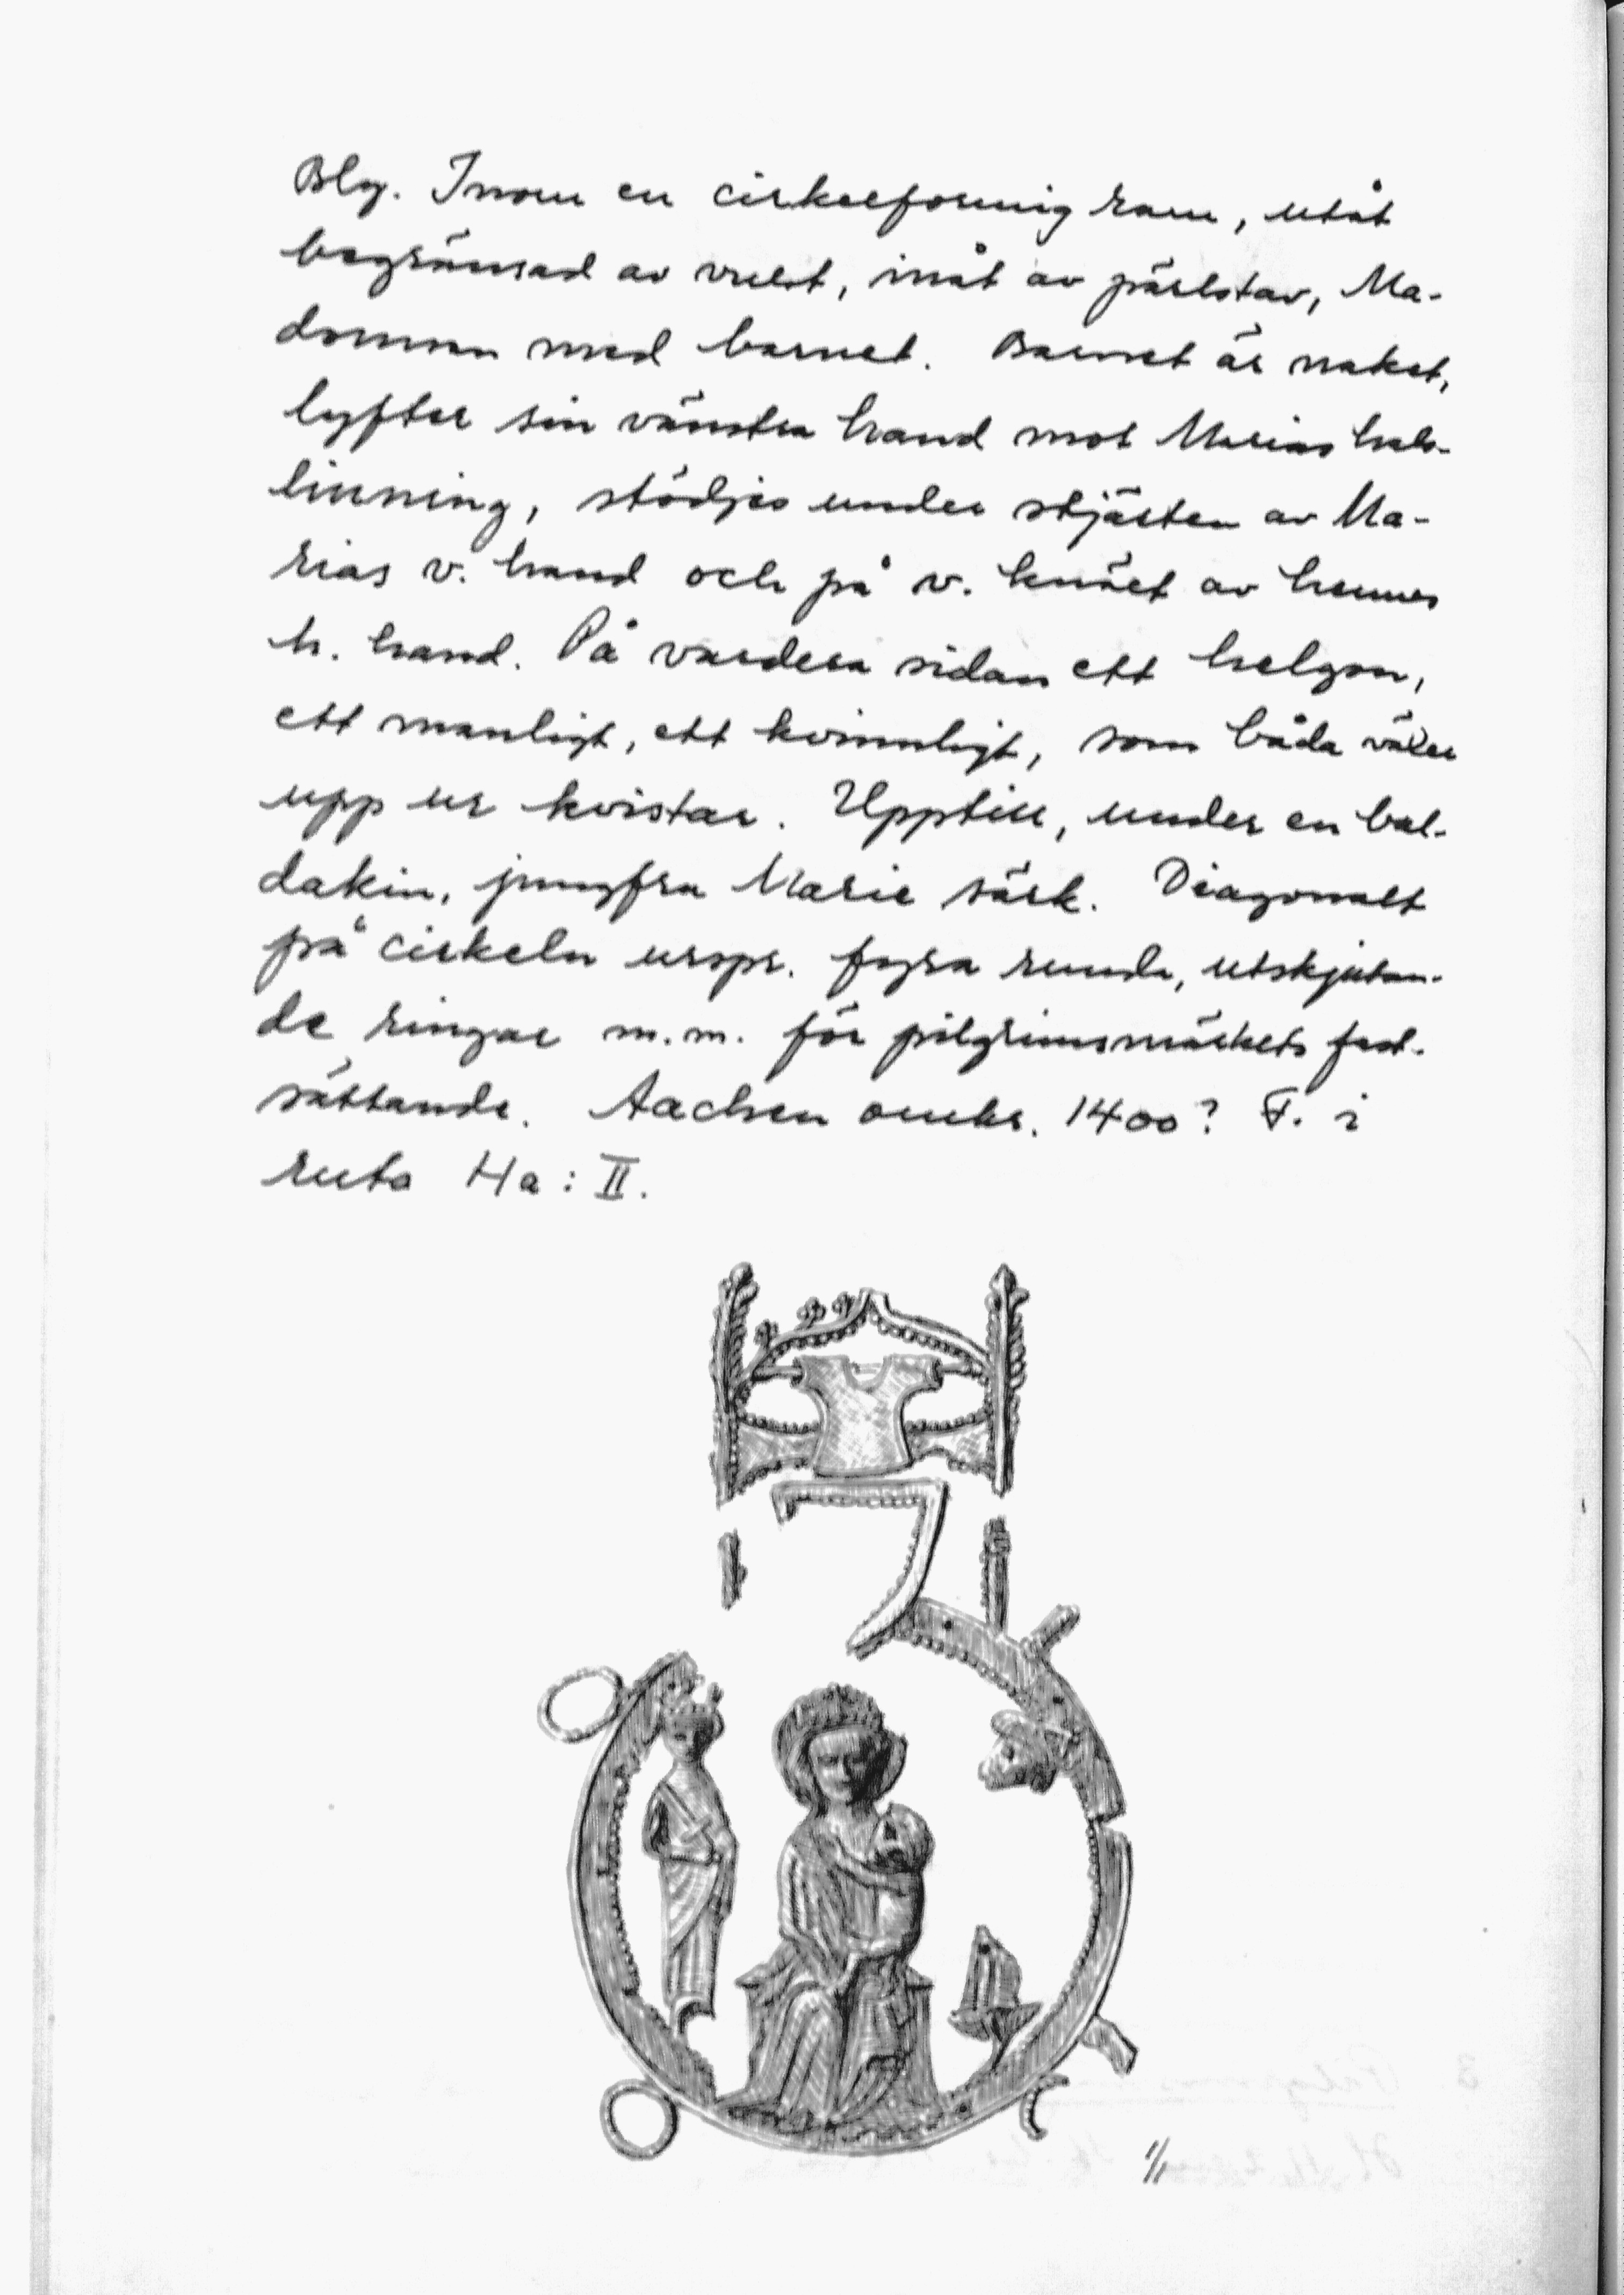 Bly. Inom en cirkelformig ram, utåt
begränsad av vulst, inåt av pärlstav, Ma-
donnan med barnet. Barnet är naket,
lyfter sin vänstra hand mot Marias hals-
linning, stödjes under stjärten av Ma-
rias v. hand och på v. knäet av hennes
h. hand. På vardera sidan ett helgon,
ett manligt, ett kvinnligt, som båda växer
upp ur kvistar. Upptill, under en bal-
dakin, jungfru Marie särk. Diagonalt
på cirkeln urspr. fyra runda, utskjutan-
de ringar m.m. för pilgrimsmärkets fast-
sättande. Aachen omkr. 1400? F. i
ruta Ha: II.
1/1